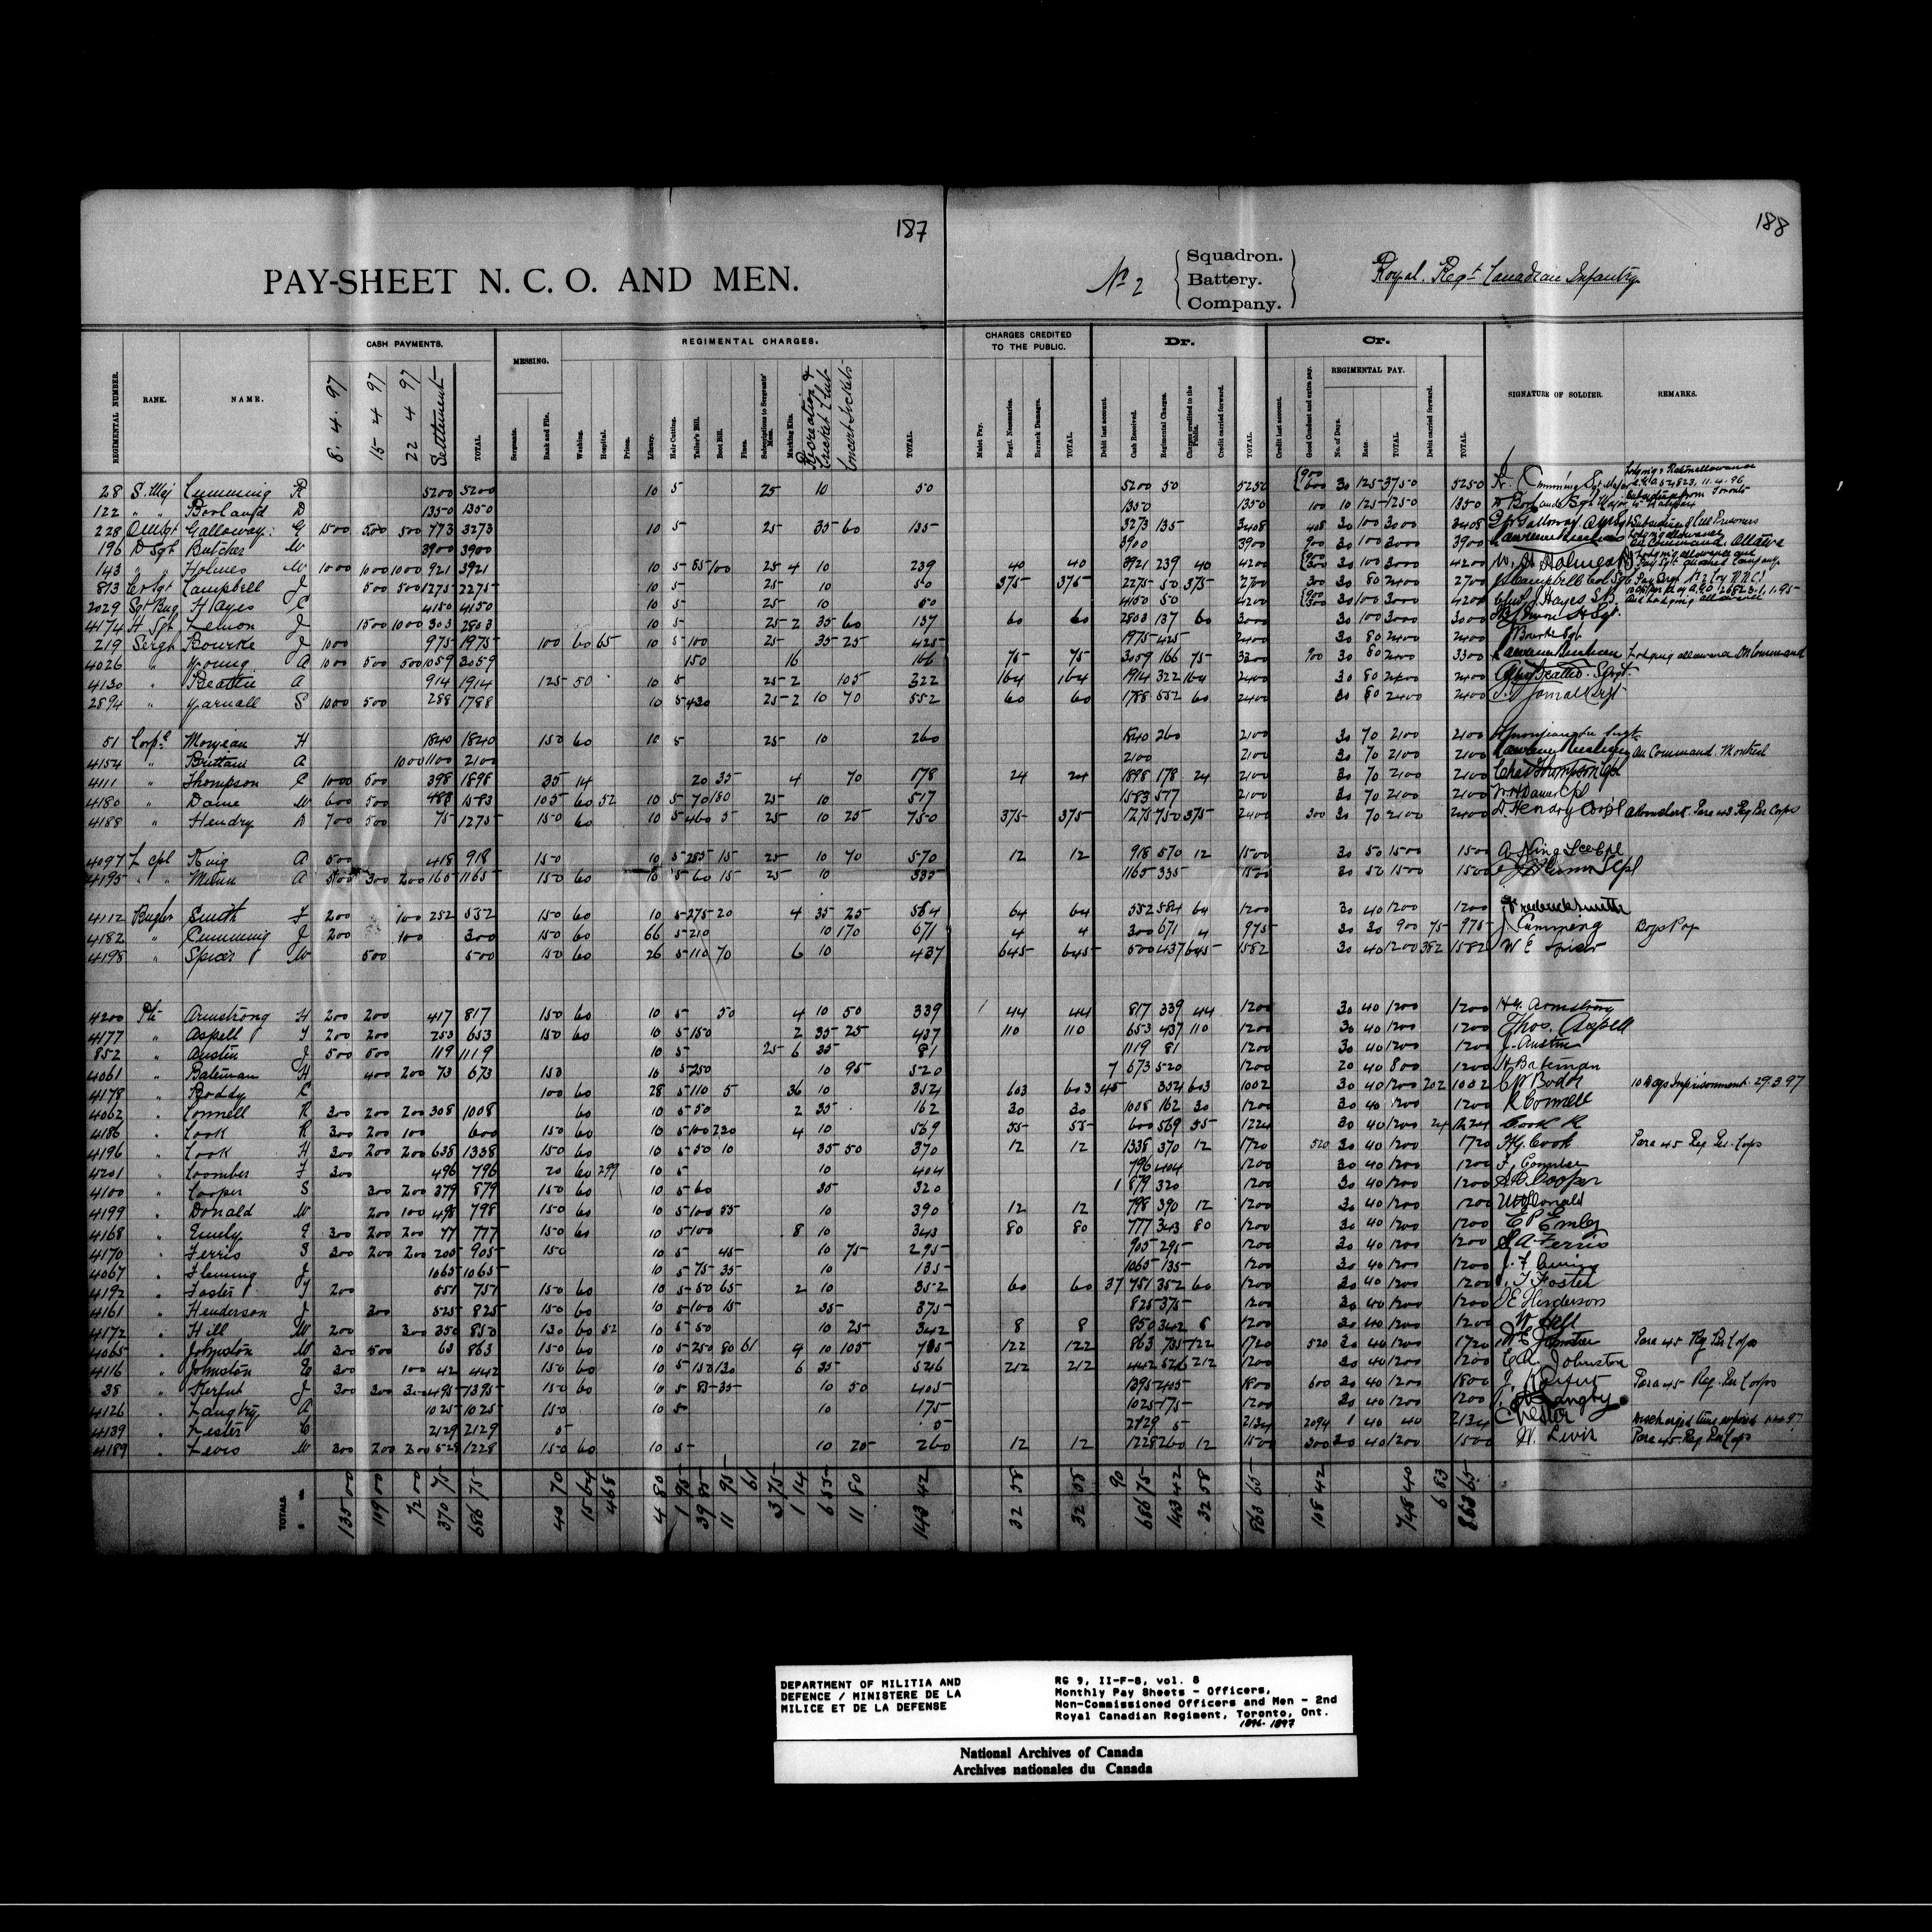 187
188
PAY-SHEET N. C. O. AND MEN.
No 2 Squadron. Battery. Company.
Royal. Regt Canadian Infantry
REGIMENTAL NUMBER. RANK. NAME. CASH PAYMENTS. MESSING. REGIMENTAL CHARGES. CHARGES CREDITED TO THE PUBLIC. Dr. Cr. SIGNATURE OF SOLDIER. REMARKS.
8. 4. 97 15 4 97 22 4 97 Settlement TOTAL Sergeants. Rank and File. Washing. Hospital. Prison. Library. Hair Cutting. Tailor's Bill. Boot Bill. Fines. Subscriptions to Sergeants' Mess. Marking Kits. Recreation & Cricket Club Concert Tickets TOTAL
Mulct Pay. Regtl. Necessaries. Barrack Damages. TOTAL Debit last account. Cash Received. Regimental Charges. Charges credited to the Public. Credit carried forward. TOTAL Credit last account. Good Conduct and extra pay. REGIMENTAL PAY. No. of Days. Rate. TOTAL Debit carried forward. TOTAL
28 S. Maj Cumming R 5200 5200 10 5 25 10 50 5200 50 5250 900 600 30 125 3750 5250
122 " " Borland D 1350 1350 1350 1350 100 10 125 1250 1350
228 QMSgt Galloway G 1500 500 500 773 3273 10 5 25 35 60 135 3273 135 3408 408 30 100 3000 3408
196 D Sgt Butcher W 3900 3900 3900 3900 900 30 100 3000 3900
143 " " Holmes W 1000 1000 1000 921 3921 10 5 85 100 25 4 10 239 40 40 3921 239 40 4200 900 300 30 100 3000 4200
813 Cr Sgt Campbell J 500 500 1275 2275 10 5 25 10 50 375 375 2275 50 375 2700 300 30 80 2400 2700
2029 Sgt Bug Hayes C 4150 4150 10 5 25 10 50 4150 50 4200 900 300 30 100 3000 4200
4174 H Sgt Lemon J 1500 1000 303 2803 10 5 25 2 35 60 137 60 60 2803 137 60 3000 30 100 3000 3000
219 Sergt Bourke J 1000 975 1975 100 60 65 10 5 100 25 35 25 425 1975 425 2400 30 80 2400 2400
4026 " Young A 1000 500 500 1059 3059 150 16 166 75 75 3059 166 75 3300 900 30 80 2400 3300 Lodging allowance On Command
4130 " Beattie A 914 1914 125 50 10 5 25 2 105 322 164 164 1914 322 164 2400 30 80 2400 2400
2894 " Yarnall S 1000 500 288 1788 10 5 430 25 2 10 70 552 60 60 1788 552 60 2400 30 80 2400 2400
51 Corpl Monjeau H 1840 1840 150 60 10 5 25 10 260 1840 260 2100 30 70 2100 2100
4154 " Brittain A 1000 1100 2100 2100 2100 30 70 2100 2100 On Command. Montreal
4111 " Thompson C 1000 500 398 1898 35 14 20 35 4 70 178 24 24 1898 178 24 2100 30 70 2100 2100 Chas Thompson Cpl
4180 " Dame W 600 500 483 1583 105 60 52 10 5 70 180 25 10 517 1583 517 2100 30 70 2100 2100 W H Dame Cpl
4188 " Hendry D 700 500 75 1275 150 60 10 5 460 5 25 10 25 750 375 375 1275 750 375 2400 300 30 70 2100 2400 D. Hendry Corpl
4097 L cpl King A 500 418 918 150 10 5 285 15 25 10 70 570 12 12 918 570 12 1500 30 50 1500 1500 A King Lce Cpl
4195 " " Munn A 500 300 200 165 1165 150 60 10 5 60 15 25 10 335 1165 335 1500 30 50 1500 1500
4112 Bugler Smith F 200 100 252 552 150 60 10 5 275 20 4 35 25 584 64 64 552 584 64 1200 30 40 1200 1200 Frederick Smith
4182 " Cumming J 200 100 300 150 60 66 5 210 10 170 671 4 4 300 671 4 975 30 30 900 75 975 J Cumming Boys Pay
4198 " Spicer W 500 500 150 60 26 5 110 70 6 10 437 645 645 500 437 645 1582 30 40 1200 382 1582 W E Spicer
4200 Pte Armstrong H 200 200 417 817 150 60 10 5 50 4 10 50 339 44 44 817 339 44 1200 30 40 1200 1200 H G. Armstrong
4177 " Aspell T 200 200 253 653 150 60 10 5 150 2 35 25 437 110 110 653 437 110 1200 30 40 1200 1200 Thos. Aspell
852 " Austin J 500 500 119 1119 10 5 25 6 35 81 1119 81 1200 30 40 1200 1200 J. Austin
4061 " Bateman H 400 200 73 673 150 10 5 250 10 95 520 7 673 520 1200 20 40 800 1200 H. Bateman
4178 " Boddy C 100 60 28 5 110 5 36 10 354 603 603 45 354 603 1002 30 40 1200 202 1002 10 days Imprisonment 29.3.97
4062 " Connell R 300 200 200 308 1008 60 10 5 50 2 35 162 30 30 1008 162 30 1200 30 40 1200 1200 R Connell
4186 " Cook R 300 200 100 600 150 60 10 5 100 220 4 10 569 55 55 600 569 55 1224 30 40 1200 24 1224 Cook R
4196 " Cook H 300 200 200 638 1338 150 60 10 5 50 10 35 50 370 12 12 1338 370 12 1720 520 30 40 1200 1720 H G. Cook Para 45 Reg Per Corps
4201 " Coomber F 300 496 796 20 60 299 10 5 10 404 796 404 1200 30 40 1200 1200
4100 " Cooper S 300 200 379 879 150 60 10 5 60 35 320 1 879 320 1200 30 40 1200 1200 S. C. Cooper
4199 " Donald W 200 100 498 798 150 60 10 5 100 55 10 390 12 12 798 390 12 1200 30 40 1200 1200
4168 " Emely E 300 200 200 77 777 150 60 10 5 100 8 10 343 80 80 777 343 80 1200 30 40 1200 1200
4170 " Ferris S 300 200 200 205 905 150 10 5 45 10 75 295 905 295 1200 30 40 1200 1200 S A Ferris
4067 " Fleming J 1065 1065 10 5 75 35 10 135 1065 135 1200 30 40 1200 1200
4192 " Foster T 200 551 751 150 60 10 5 50 65 2 10 352 60 60 37 751 352 60 1200 30 40 1200 1200 T Foster
4161 " Henderson J 300 525 825 150 60 10 5 100 15 35 375 825 375 1200 30 40 1200 1200 J E Henderson
4172 " Hill W 200 300 350 850 130 60 52 10 5 50 10 25 342 8 8 850 342 8 1200 30 40 1200 1200 W Hill
4065 " Johnston W 300 500 63 863 150 60 10 5 250 80 61 4 10 105 735 122 122 863 735 122 1720 520 30 40 1200 1720 Para 45 Reg Per Corps
4116 " Johnston C 300 100 42 442 150 60 10 5 150 130 6 35 546 212 212 442 546 212 1200 30 40 1200 1200 C A. Johnston
38 " Kerfut J 300 300 300 495 1395 150 60 10 5 85 35 10 50 405 1395 405 1800 600 30 40 1200 1800 J. Kerfut Para 45 Reg. Per Corps
4126 " Langtry A 1025 1025 150 10 5 10 175 1025 175 1200 30 40 1200 1200
4139 " Lester C 2129 2129 5 5 2129 5 2134 2094 1 40 40 2134 C Lester
4189 " Lewis W 300 200 200 528 1228 150 60 10 5 10 25 260 12 12 1228 260 12 1500 300 30 40 1200 1500 W. Lewis Para 45 Reg Per Corps
TOTALS. 135 00 119 00 72 00 370 75 686 75 40 70 15 64 4 68 4 80 1 95 39 85 11 95 61 3 75 1 14 6 55 11 80 143 42 32 58 32 58 90 686 75 143 42 32 58 863 65 108 42 748 40 6 83 863 65
DEPARTMENT OF MILITIA AND
DEFENCE / MINISTERE DE LA
MILICE ET DE LA DEFENSE
RG 9, II-F-8, vol. 8
Monthly Pay Sheets - Officers,
Non-Commissioned Officers and Men - 2nd
Royal Canadian Regiment, Toronto, Ont.
1896-1897
National Archives of Canada
Archives nationales du Canada